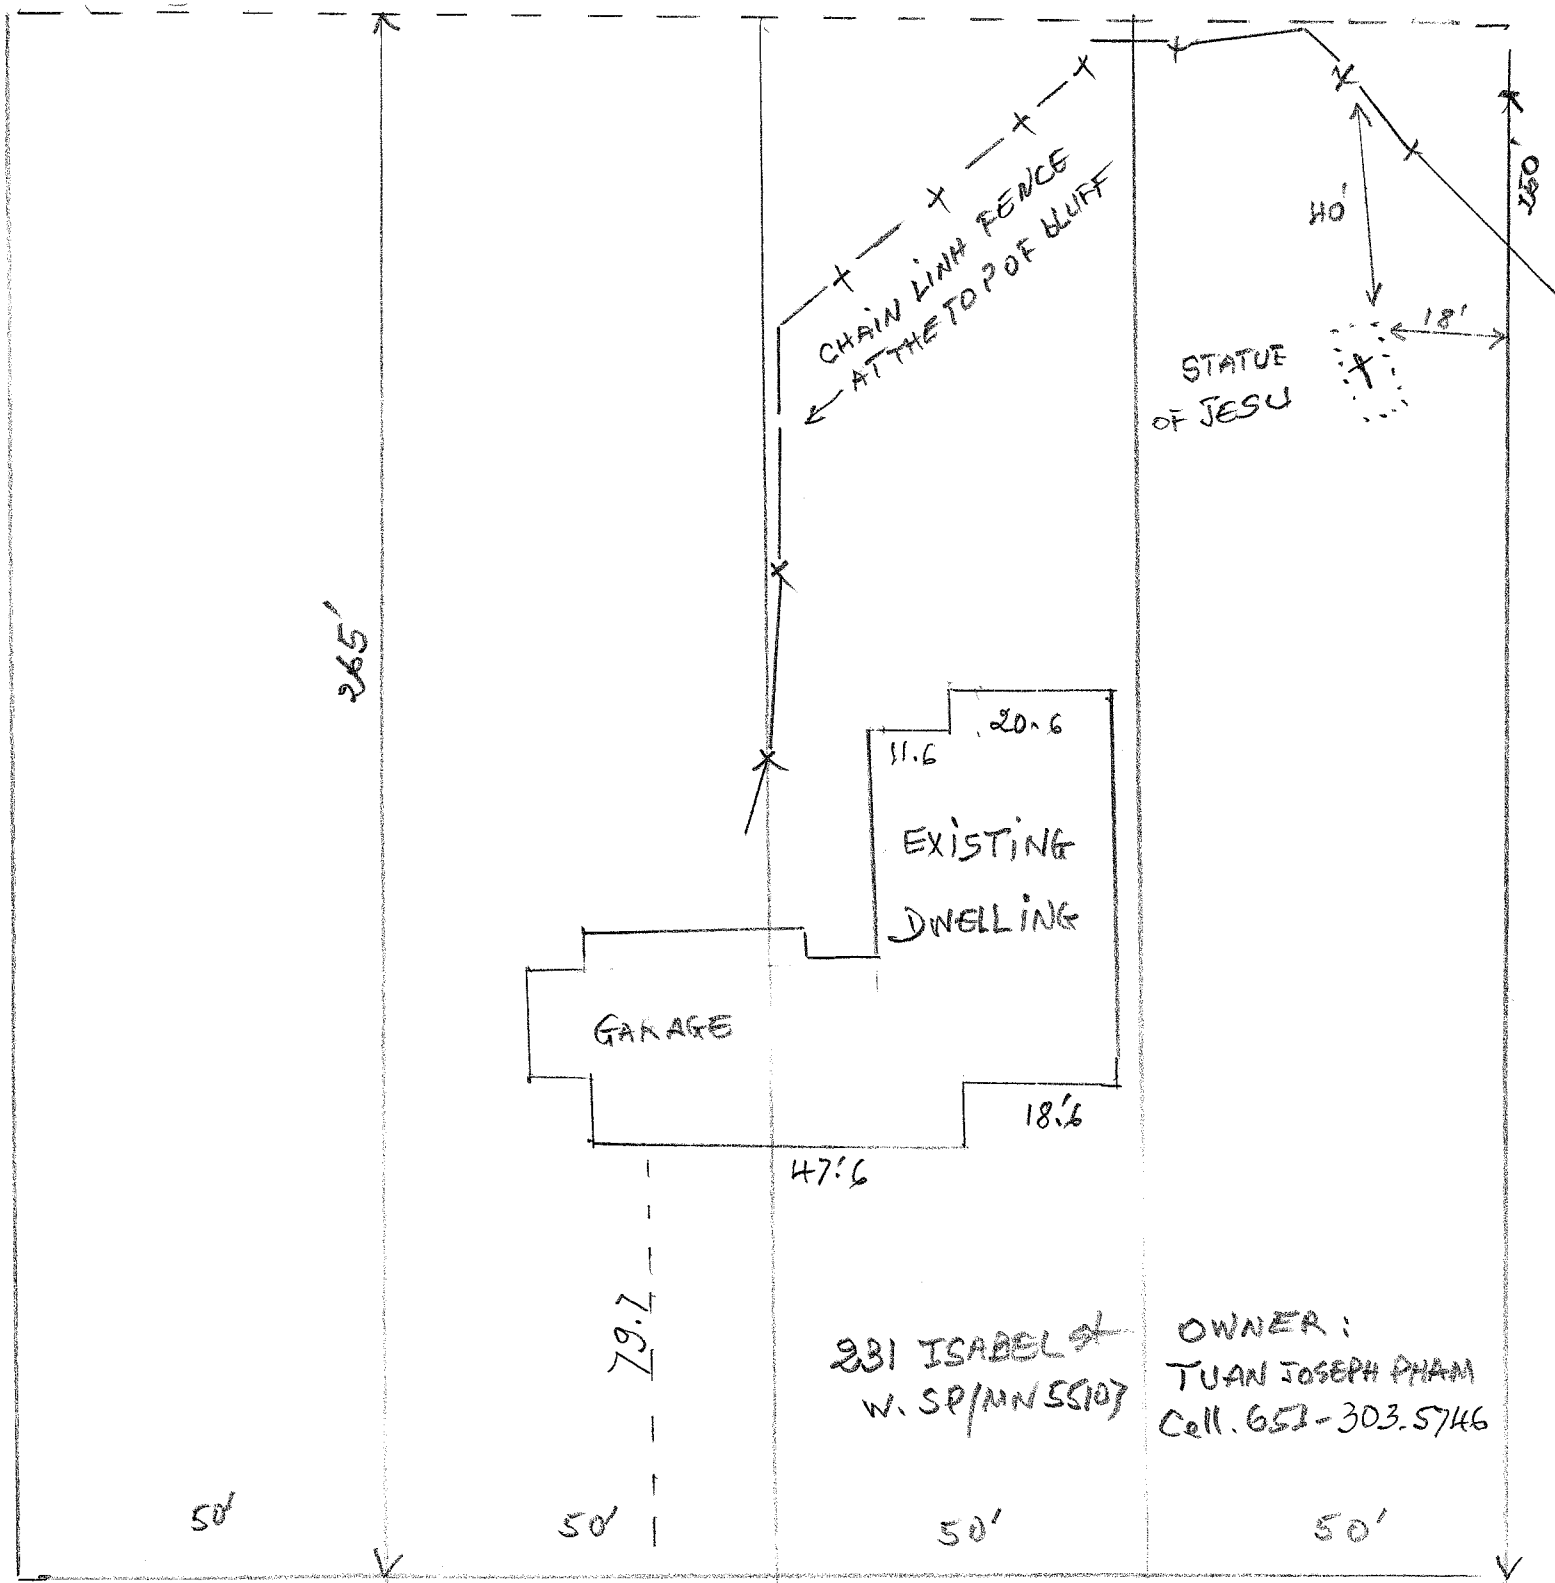 CHAIN LINH FENCE
AT THE TOP OF bLUFF
40'
18'
STATUE
OF JESU
265'
20.6
11.6
EXISTING
DWELLING
GARAGE
18'.6
47'.6
79.7
231 ISABEL St
W. SP/MN 55107
OWNER:
TUAN JOSEPH PHAM
Cell. 651-303.5746
50'
50'
50'
50'